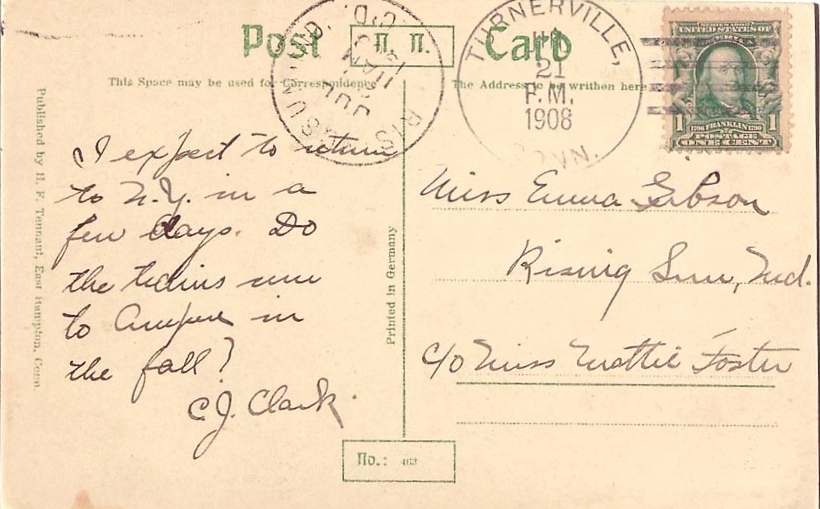 Post
П. П.
Card
This Space may be used for Correspondence
The Address to be written here
TURNERVILLE,
21
P.M.
1908
CONN.
RISING SUN
JUL
11 AM
UNITED STATES OF
1 1706 FRANKLIN 1790 1
POSTAGE
ONE CENT
I expect to return
to N.Y. in a
few days. Do
the trains run
to Ampere in
the fall?
C.J. Clark.
Miss Emma Gibson
Rising Sun, Md.
c/o Miss Mattie Foster
Published by H. F. Tennant, East Hampton, Conn.
Printed in Germany
No.: 463